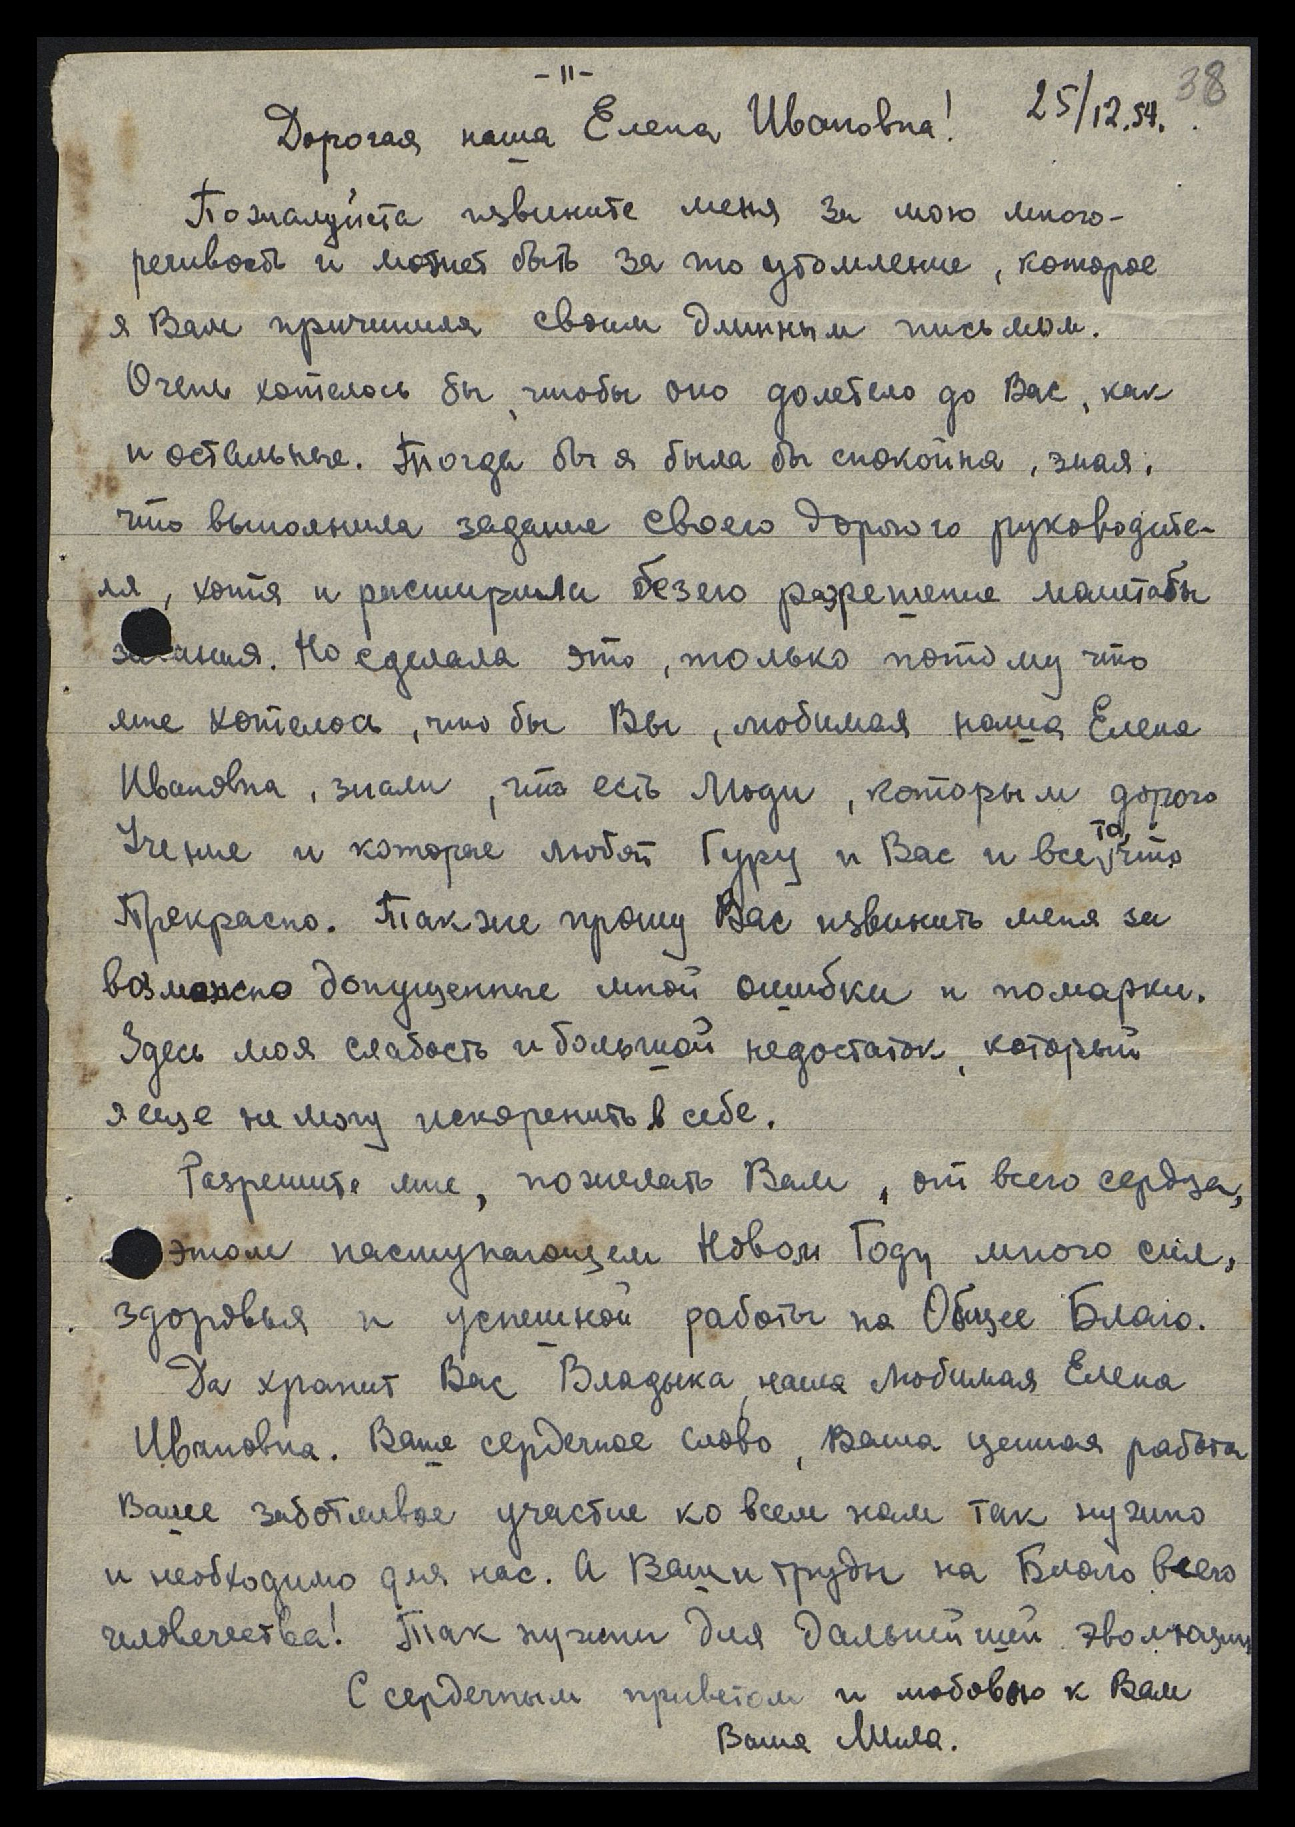 - 11 -
38
25/12.54.
Дорогая наша Елена Ивановна!
Пожалуйста извините меня за мою много-
речивость и может быть за то утомление, которое
я Вам причинила своим длинным письмом.
Очень хотелось бы, чтобы оно долетело до Вас, как
и остальные. Тогда бы я была бы спокойна, зная,
что выполнила задание своего дорогого руководите-
ля, хотя и расширила без его разрешение маштабы
задания. Но сделала это, только потому что
мне хотелось, что бы Вы, любимая наша Елена
Ивановна, знали, что есть люди, которым дорого
Учение и которые любят Гуру и Вас и все то, что
Прекрасно. Так же прошу Вас извинить меня за
возможно допущенные мной ошибки и помарки.
Здесь моя слабость и большой недостаток, который
я еще не могу искоренить в себе.
Разрешите мне, пожелать Вам, от всего сердза,
этом наступающем Новом Году много сил,
здоровья и успешной работы на Общее Благо.
Да хранит Вас Владыка, наша любимая Елена
Ивановна. Ваше сердечное слово, Ваша ценная работа
Ваше заботливое участие ко всем нам так нужно
и необходимо для нас. А Ваши труды на Благо всего
человечества! Так нужны для дальнейшей эволюции
С сердечным приветом и любовью к Вам
Ваша Мила.